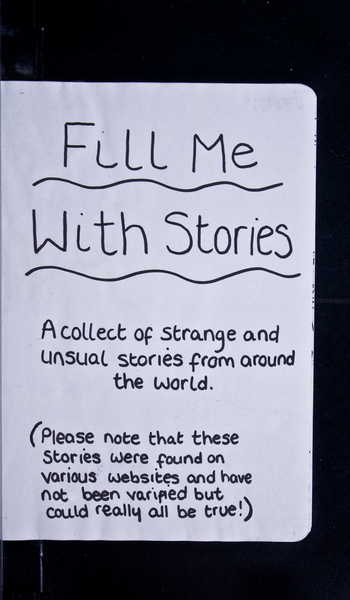 Fill Me
With Stories
A collect of strange and
unsual stories from around
the world.
(Please note that these
Stories were found on
various websites and have
not been varified but
could really all be true!)